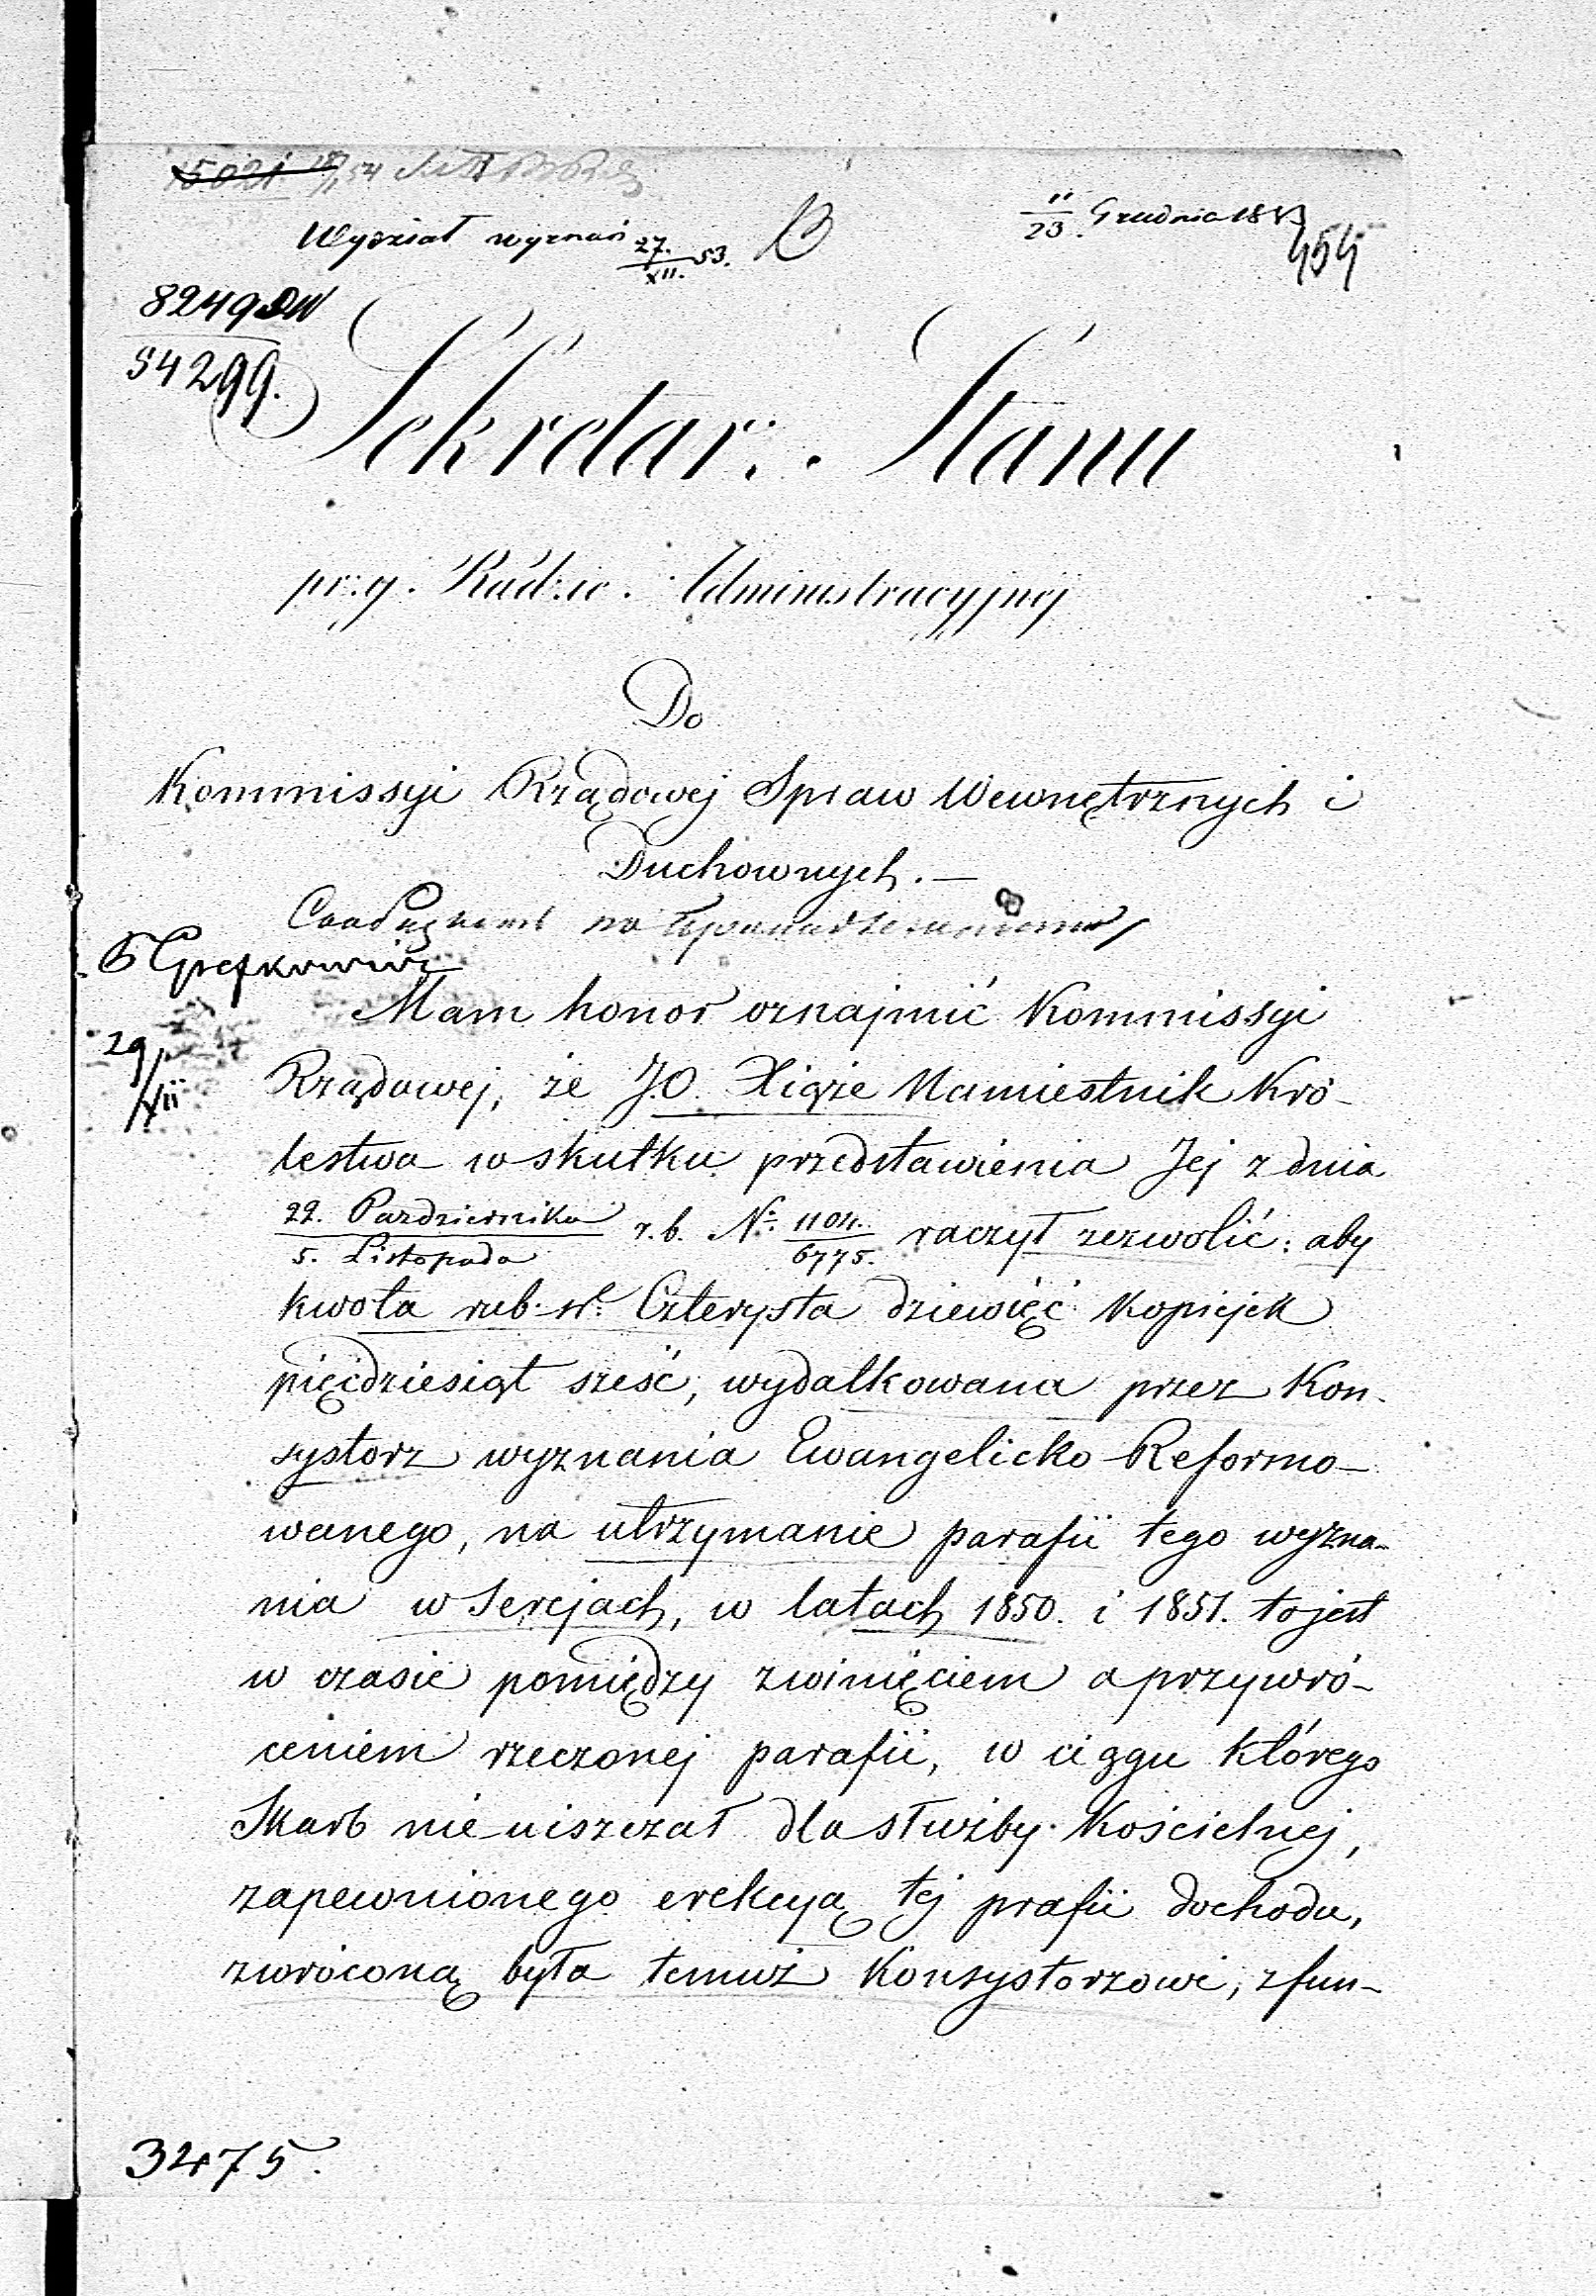 15021
Wydział wyznań 27./XII. 53. B
11/23 Grudnia 1853
454
8249 DW
54299.
Sekretarz Stanu
przy Radzie Administracyjnej
Do
Kommissyi Rządowej Spraw Wewnętrznych i
Duchownych.—
29/XII
Mam honor oznajmić Kommissyi
Rządowej, że J.O. Xiąże Namiestnik Kró-
lestwa w skutku przedstawienia Jej z dnia
22. Pazdziernika/5. Listopada r.b. No. 1104./6775. raczył zezwolić: aby
kwota rub. sr. Czterysta dziewięć kopiejek
pięćdziesiąt sześć, wydatkowana przez Kon-
systorz wyznania Ewangelicko-Reformo-
wanego, na utrzymanie parafii tego wyzna-
nia w Serejach, w latach 1850. i 1851. to jest
w czasie pomiędzy zwinięciem a przywró-
ceniem rzeczonej parafii, w ciągu którego
Skarb nie uiszczał dla służby Kościelnej,
zapewnionego erekcyą tej prafii dochodu,
zwróconą była temuż Konsystorzowi, z fun-
3475.